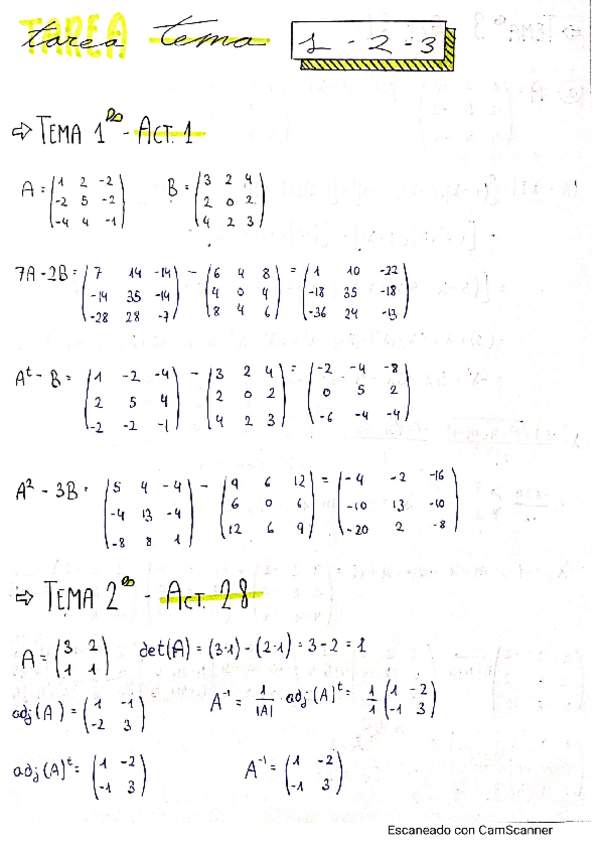 tarea tema 1 - 2 - 3
⇒ TEMA 1 - ACT. 1
A = (1 2 -2; -2 5 -2; -4 4 -1) B = (3 2 4; 2 0 2; 4 2 3)
7A - 2B = (7 14 -14; -14 35 -14; -28 28 -7) - (6 4 8; 4 0 4; 8 4 6) = (1 10 -22; -18 35 -18; -36 24 -13)
Aᵗ - B = (1 -2 -4; 2 5 4; -2 -2 -1) - (3 2 4; 2 0 2; 4 2 3) = (-2 -4 -8; 0 5 2; -6 -4 -4)
A² - 3B = (5 4 -4; -4 13 -4; -8 8 1) - (9 6 12; 6 0 6; 12 6 9) = (-4 -2 -16; -10 13 -10; -20 2 -8)
⇒ TEMA 2 - ACT. 28
A = (3 2; 1 1) det(A) = (3·1) - (2·1) = 3 - 2 = 1
adj(A) = (1 -1; -2 3) A⁻¹ = 1/|A| adj(A)ᵗ = 1/1 (1 -2; -1 3)
adj(A)ᵗ = (1 -2; -1 3) A⁻¹ = (1 -2; -1 3)
Escaneado con CamScanner